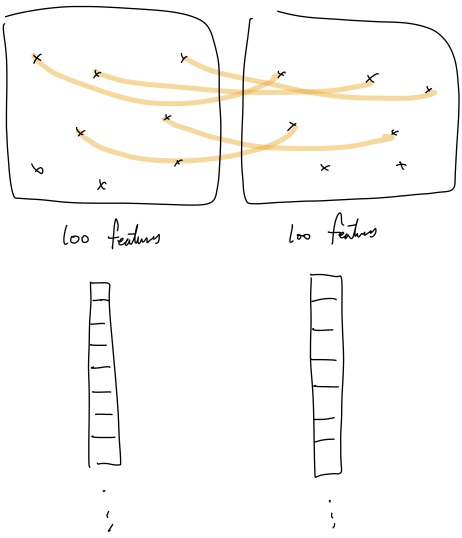 100 features
100 features